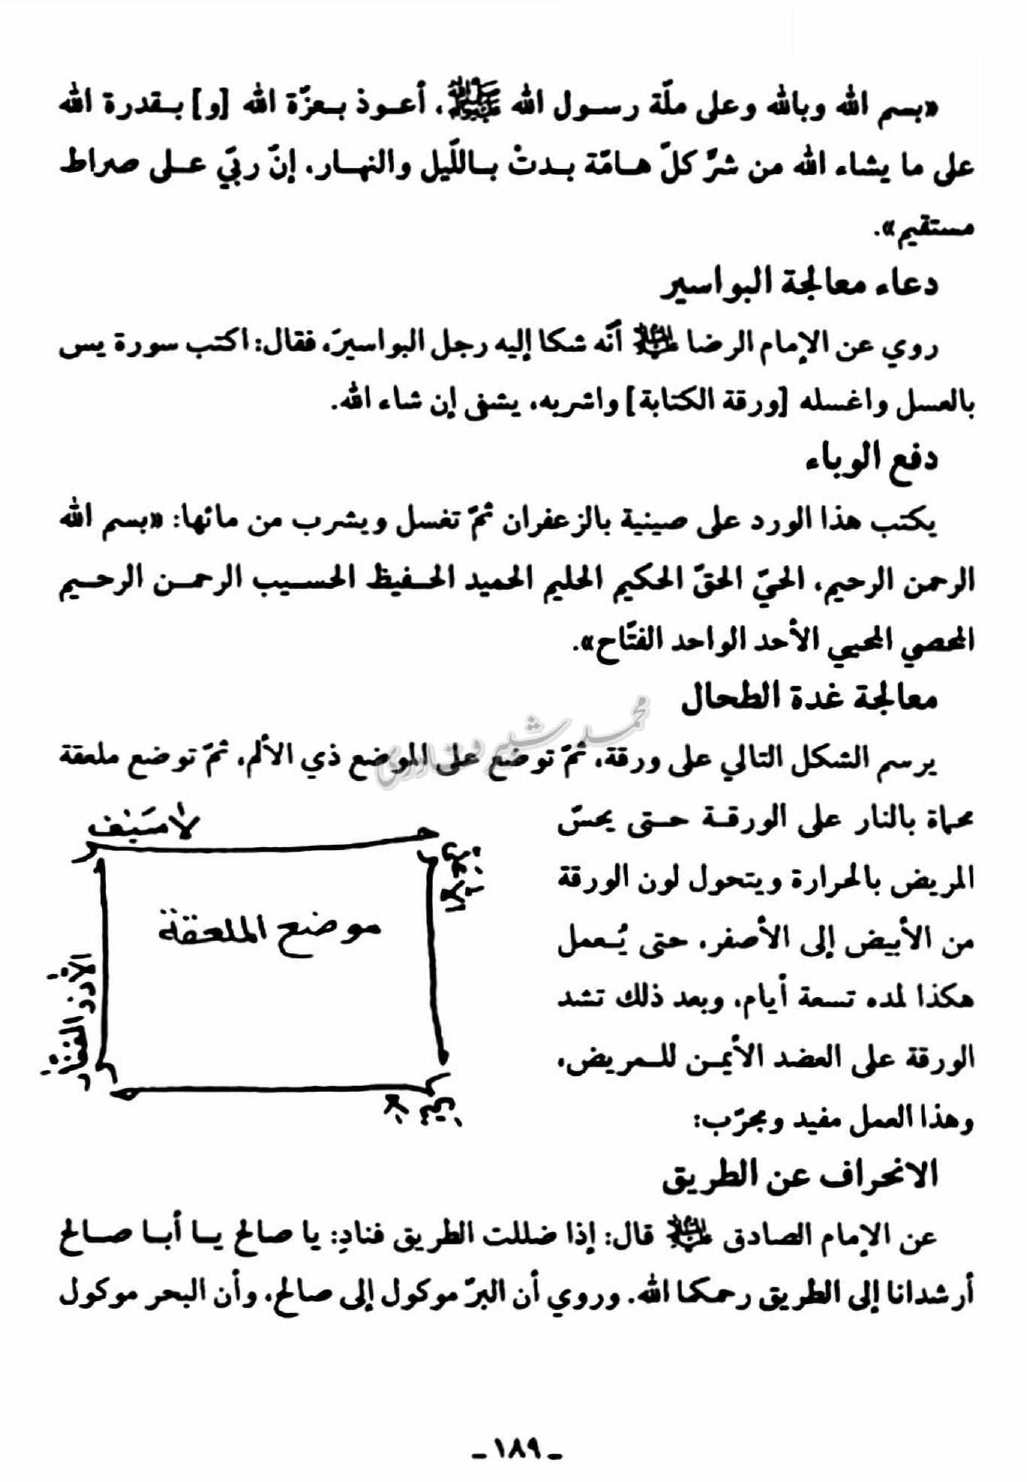 «بسم الله وبالله وعلى ملّة رسول الله ﷺ، أعوذ بعزّة الله [و] بقدرة الله
على ما يشاء الله من شرّ كلّ هامّة بدتْ بالليل والنهار، إنّ ربّي على صراط
مستقيم».
دعاء معالجة البواسير
روي عن الإمام الرضا عليه السلام أنّه شكا إليه رجل البواسيرَ، فقال: اكتب سورة يس
بالعسل واغسله [ورقة الكتابة] واشربه، يشفى إن شاء الله.
دفع الوباء
يكتب هذا الورد على صينية بالزعفران ثمّ تغسل ويشرب من مائها: «بسم الله
الرحمن الرحيم، الحيّ الحقّ الحكيم الحليم الحميد الحفيظ الحسيب الرحمن الرحيم
المحصي المحيي الأحد الواحد الفتّاح».
معالجة غدة الطحال
يرسم الشكل التالي على ورقة، ثمّ توضع على الموضع ذي الألم، ثمّ توضع ملعقة
محماة بالنار على الورقة حتى يحسّ
المريض بالحرارة ويتحول لون الورقة
من الأبيض إلى الأصفر، حتى يُعمل
هكذا لمده تسعة أيام، وبعد ذلك تشد
الورقة على العضد الأيمن للمريض،
وهذا العمل مفيد ومجرّب:
لا سَيْف
موضع الملعقة
الانحراف عن الطريق
عن الإمام الصادق عليه السلام قال: إذا ضللت الطريق فنادِ: يا صالح يا أبا صالح
أرشدانا إلى الطريق رحمكا الله. وروي أن البرّ موكول إلى صالح، وأن البحر موكول
- ١٨٩ -